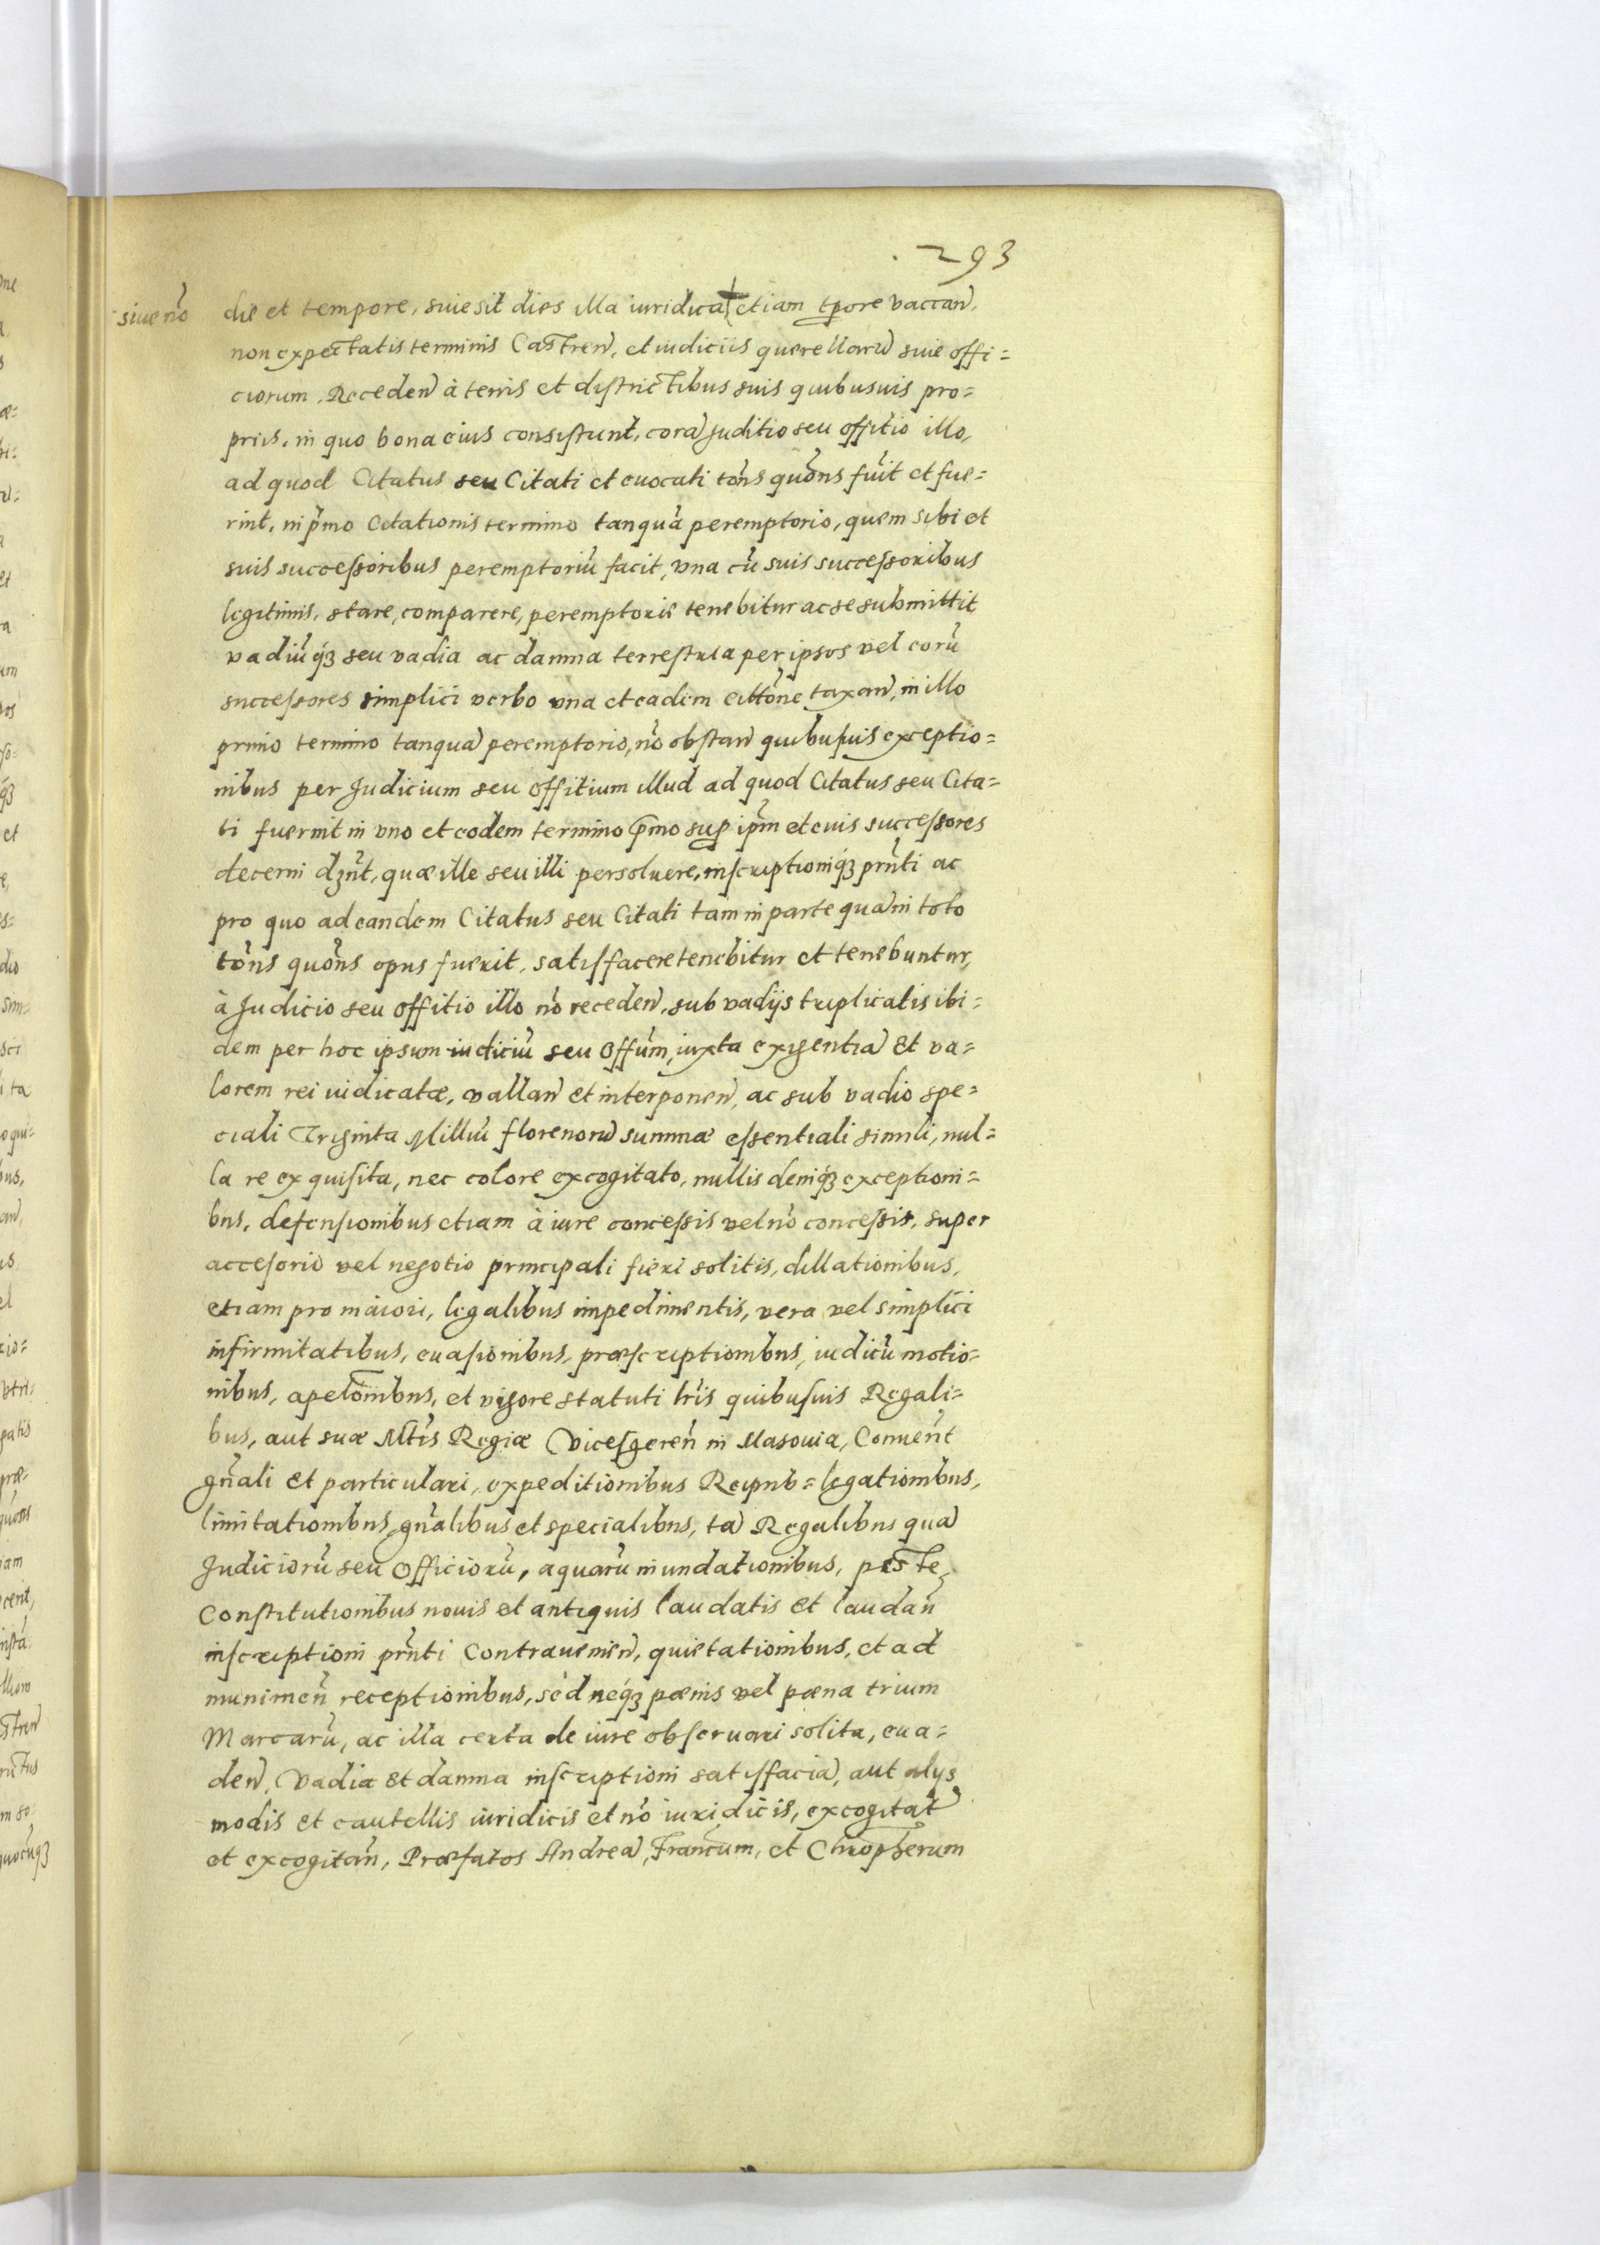 293
siue nõ
die et tempore, siue sit dies illa iuridica etiam tpore vaccan̄,
non expectatis terminis Castren̄, et iudiciis querellarū siue offi=
ciorum. Receden̄ à terris et districtibus suis quibusuis pro=
priis, in quo bona eius consistunt, corā Juditio seu offitio illo,
ad quod Citatus seu Citati et euocati tōns quōns fūit et fue=
rint, in p̄mo Citationis termino tanquā peremptorio, quem sibi et
suis successoribus peremptoriū facit, vna cū suis successoribus
legitimis, stare, comparere, peremptorie tenebitur ac se submittit
vadiūq́ꝫ seu vadia ac damna terrestria per ipsos vel eorū
successores simplici verbo vna et eadem cittōne taxan̄, in illo
primo termino tanquā peremptorio, nō obstan̄ quibusuis exceptio=
nibus per Judicium seu offitium illud ad quod Citatus seu Cita=
ti fuerint in vno et eodem termino p̄mo sup ip̄m et eius successores
decerni dꝫn̄t, quæ ille seu illi persoluere, inscriptioniq́ꝫ prn̄ti ac
pro quo ad eandem Citatus seu Citati tam in parte quā in toto
tōns quōns opus fuerit, satisfacere tenebitur et tenebuntur,
à Judicio seu offitio illo nō receden̄, sub vadijs triplicatis ibi=
dem per hoc ipsum iudiciū seu Offūm, iuxta exigentiā et va=
lorem rei iudicatæ, vallan̄ et interponen̄, ac sub vadio spe=
ciali Triginta Milliū florenorū summæ essentiali simili, nul=
la re exquisita, nec colore excogitato, nullis deniq́ꝫ exceptioni=
bus, defensionibus etiam à iure concessis vel nō concessis, super
accesorio vel negotio principali fieri solitis, dillationibus,
etiam pro maiori, legalibus impedimentis, vera vel simplici
infirmitatibus, euasionibus, præscriptionibus, iudicū motio=
nibus, apelōnibus, et vigore statuti lr̄is quibusuis Regali=
bus, aut suæ Mt̄is Regiæ Vicesgeren̄ in Masouia, Conuen̄t
gn̄ali et particulari, expeditionibus Reipub= legationibus,
limitationibus, gn̄alibus et specialibus, tā Regalibus quā
Judiciorū seu Officiorū, aquarū inundationibus, peste,
Constitutionibus nouis et antiquis laudatis et laudan̄
inscriptioni prn̄ti Contrauenien̄, quietationibus, et ad
munimen̄ receptionibus, sed neq́ꝫ pœnis vel pœna trium
Marcarū, ac illa certa de iure obseruari solita, eua=
den̄. Vadia et damna inscriptioni satisfaciā, aut alijs
modis et cautellis iuridicis et nō iuridicis, excogitat̄
et excogitan̄, Præfatos Andreā, Franc̄um, et Chr̄opherum